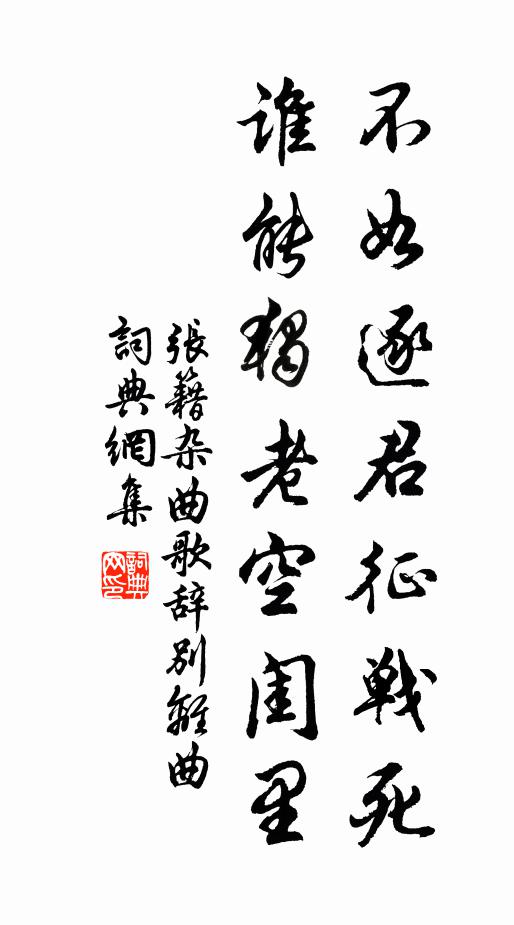 不如逐君征戦死
谁能獨老空闺里
張籍杂曲歌辞别離曲
詞典網集
詞典
网印